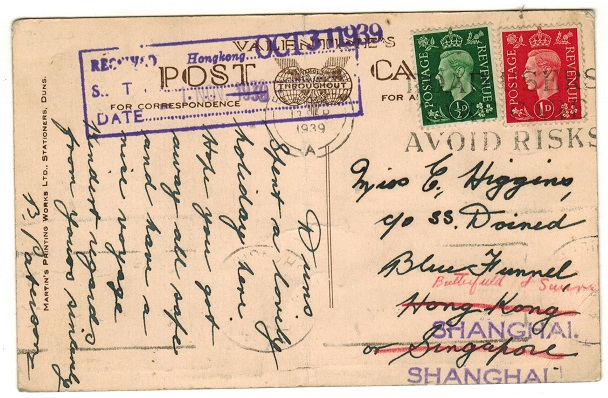 VALENTINE'S
POST CARD
FOR CORRESPONDENCE
FOR A
RECEIVED Hongkong
OCT 31 1939
S. T.
DATE
THROUGHOUT
1939
A
AVOID RISKS
POSTAGE REVENUE
½D
POSTAGE REVENUE
1D
MARTIN'S PRINTING WORKS LTD., STATIONERS, DUNS.
Duns
Spent a lovely
holiday here.
Hope you got
away all safe
and have a
nice voyage
kindest regards
from yours sincerely
Miss C. Higgins,
c/o SS.
Blue Funnel
Butterfield & Swire
Hong Kong
SHANGHAI.
or Singapore
SHANGHAI